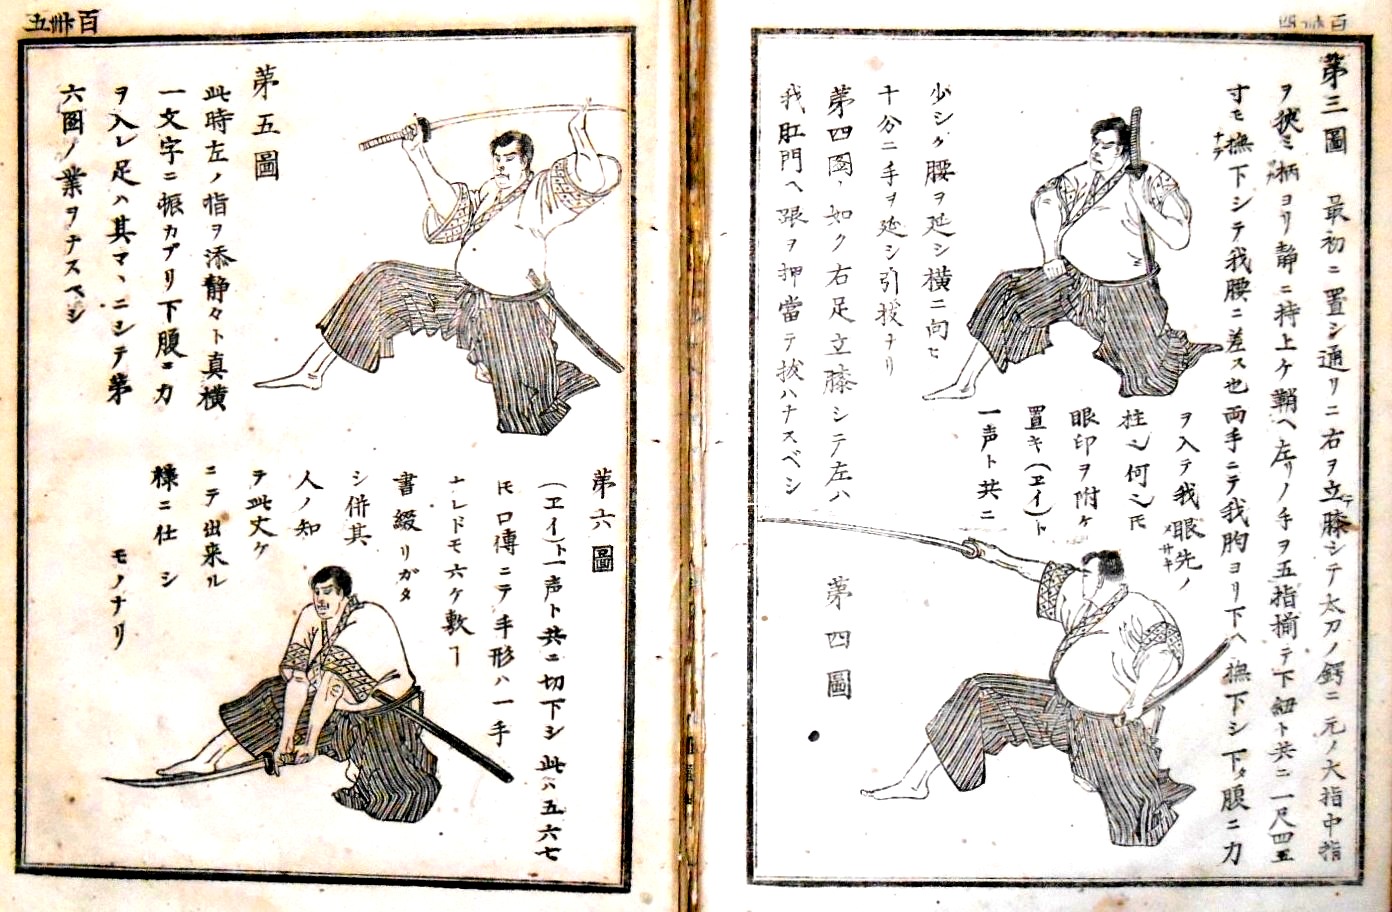 百卅四
第三圖　最初ニ置シ通リニ右ヲ立テ膝シテ太刀ノ鍔ニ元ノ大指中指
ヲ挾ミ柄ヨリ静ニ持上ケ鞘ヘ左リノ手ヲ五指揃テ下紐ト共ニ一尺四五
寸モ撫ナデ下シテ我腰ニ差ス也両手ニテ我胸ヨリ下ヘ撫下シ下タ腹ニ力
ヲ入テ我眼先メサキノ
柱シ何シ𪜈
眼印ヲ附ケ
置キ(ヱイ)ト
一声ト共ニ
少シク腰ヲ延シ横ニ向ヒ
十分ニ手ヲ延シ引拔ナリ
第四圖ノ如ク右足立膝シテ左ハ
我肛門ヘ跟ヲ押當テ拔ハナスベシ
第四圖
百卅五
第五圖
此時左ノ指ヲ添静々ト真横
一文字ニ振カブリ下腹ニ力
ヲ入レ足ハ其マヽニシテ第
六圖ノ業ヲナスベシ
第六圖
(ヱイ)ト一声ト共ニ切下シ此ハ五六七
𪜈口傳ニテ手形ハ一手
ナレドモ六ケ敷ヿ
書綴リガタ
シ併其
人ノ知
ヲ此丈ケ
ニテ出来ル
様ニ仕シ
モノナリ